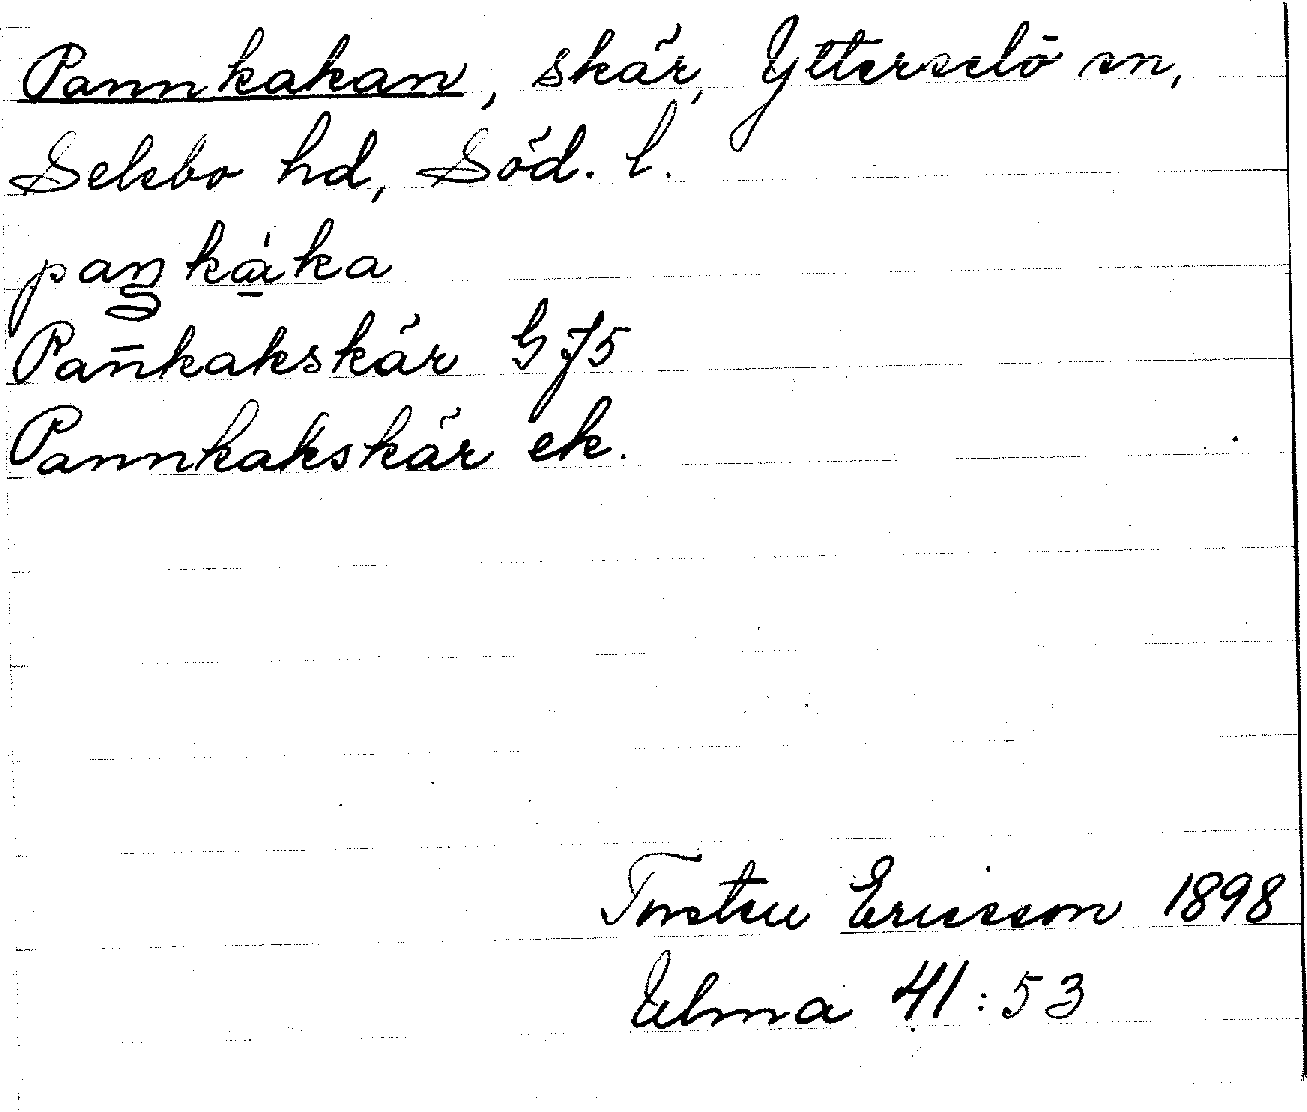 Pannkakan, skär, Ytterselö sn,
Selebo hd, Söd. l.
paŋkàka
Pan̄kakskär G 75
Pannkakskär ek.
Torsten Ericsson 1898
Ulma 41:53